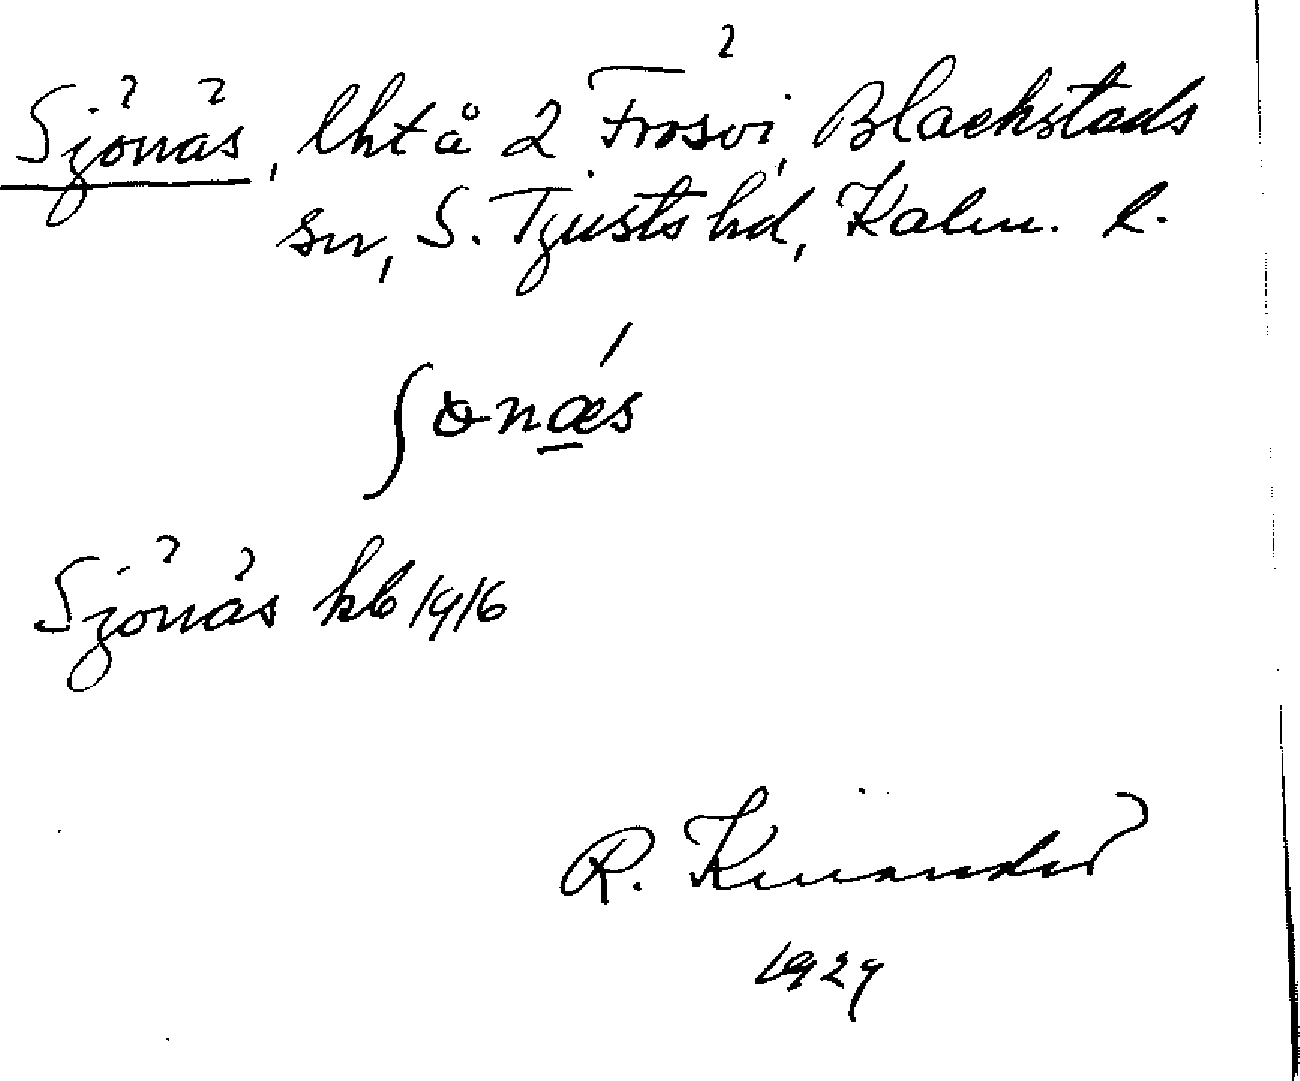 Sjönäs, lht å 2 Frösvi, Blackstads
sn, S. Tjusts hd, Kalm. l.
ʃɵnæ̲´s
Sjönäs kb 1916
R. Kinander
1929